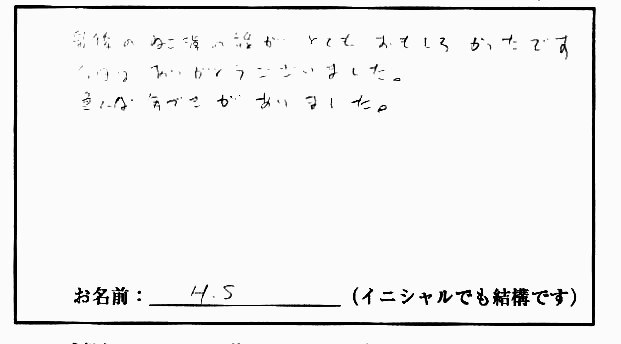 最後の ねこ達の話が とても おもしろ かったです
今日は ありがとうございました。
色んな 気づきが ありました。
お名前：H.S（イニシャルでも結構です）